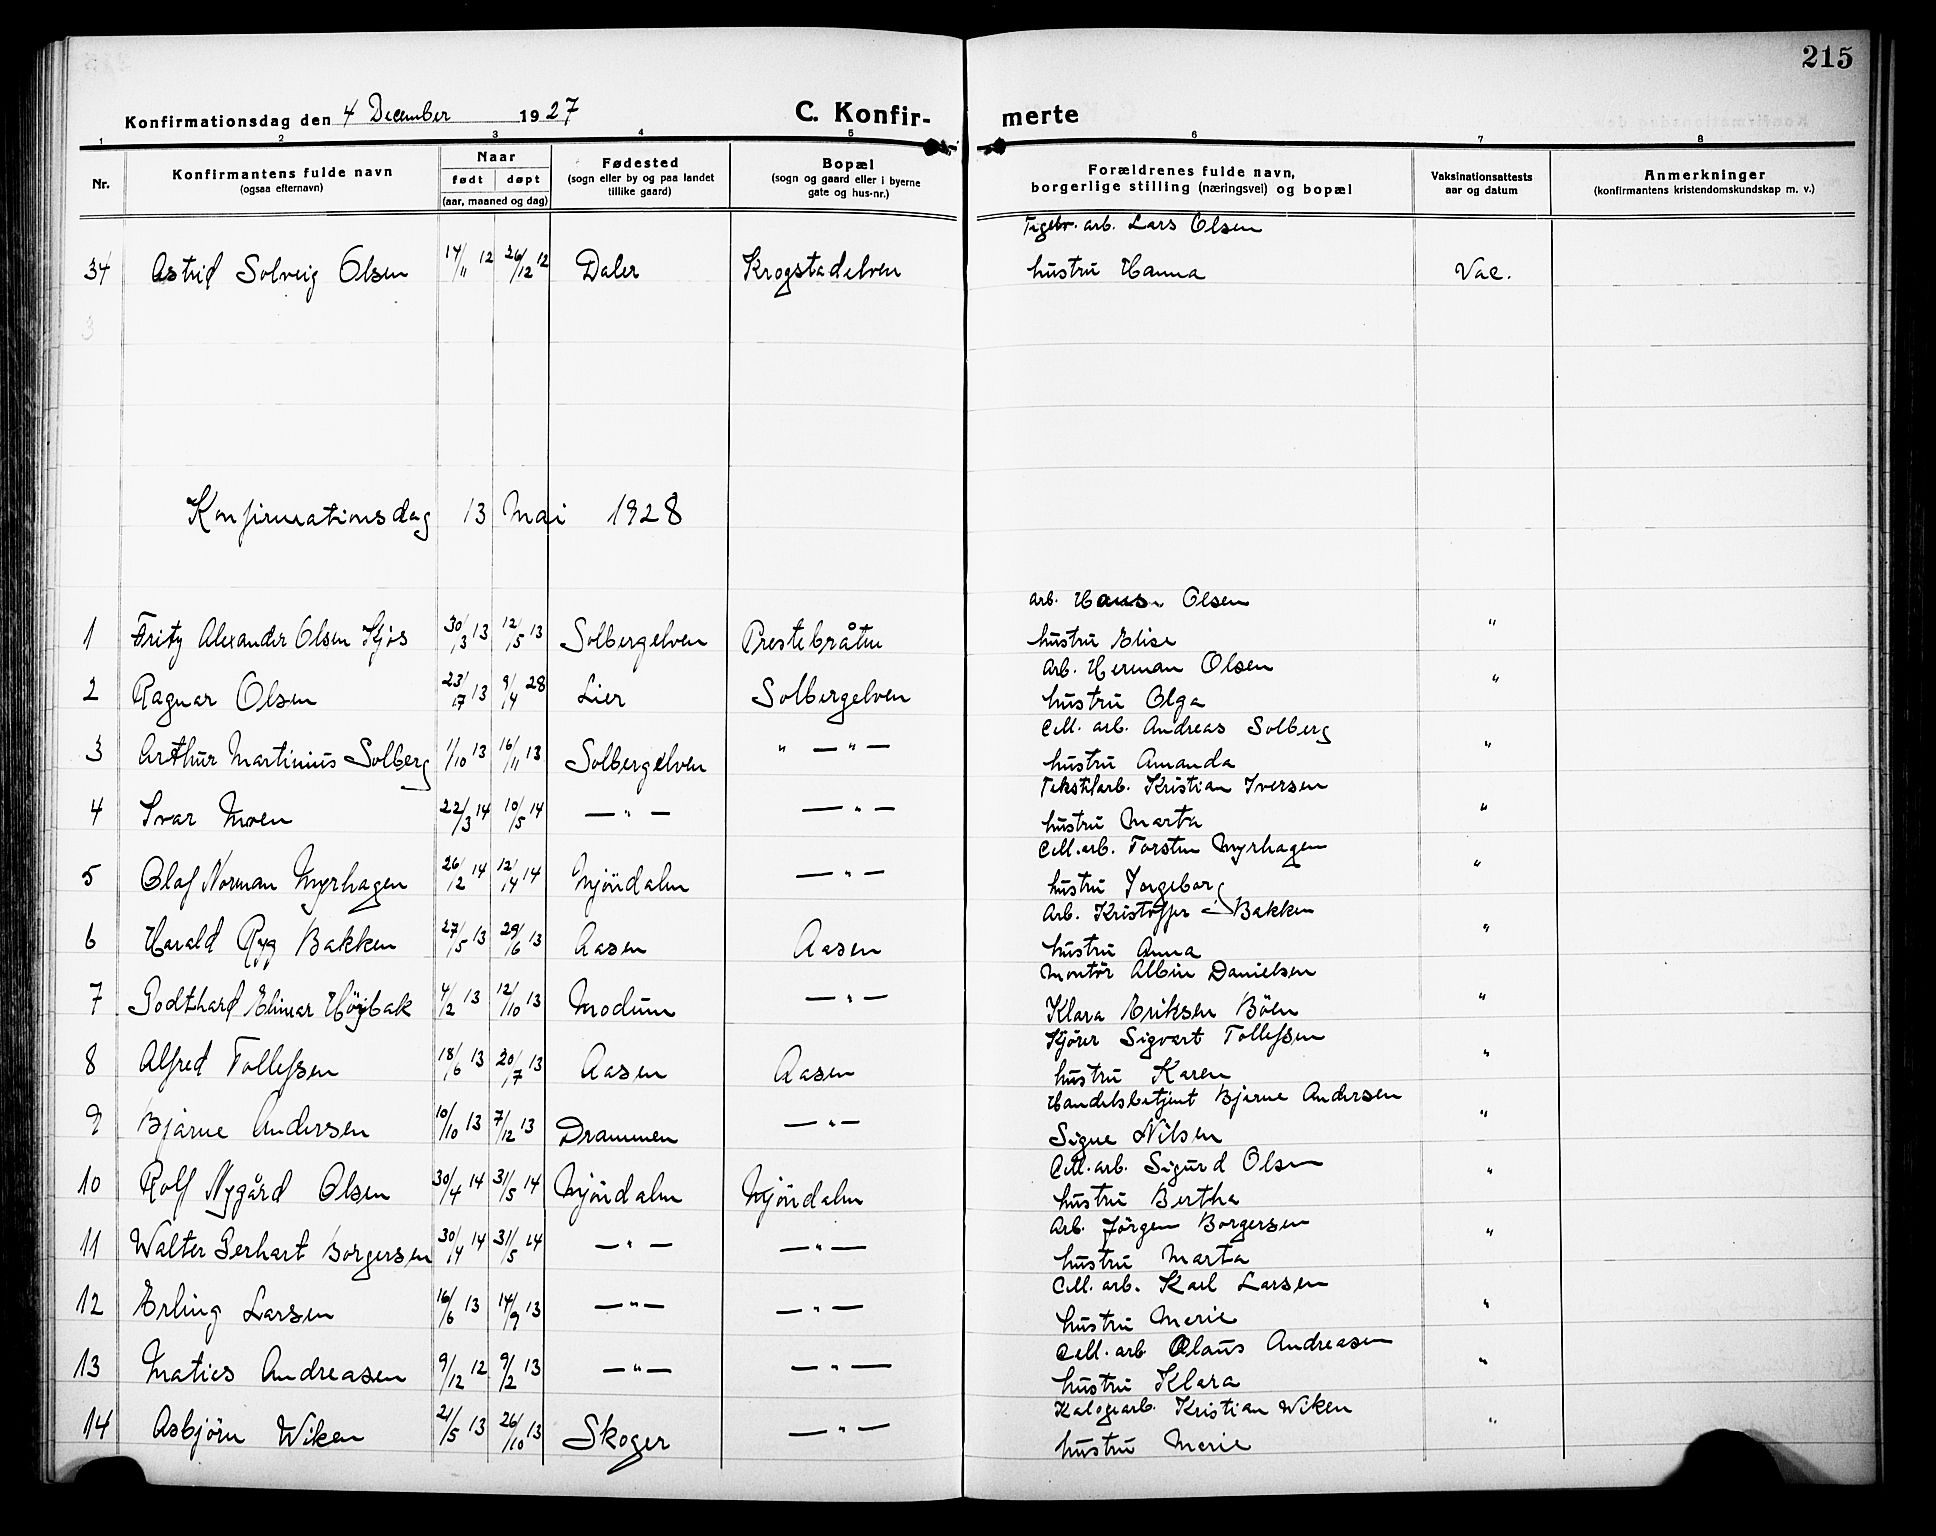 215
Konfirmationsdag den 4 December 1927 C. Konfir- merte
1 2 3 4 5 6 7 8
Nr. Konfirmantens fulde navn (ogsaa efternavn) Naar født døpt (aar, maaned og dag) Fødested (sogn eller by og paa landet tillike gaard) Bopæl (sogn og gaard eller i byerne gate og hus-nr.) Forældrenes fulde navn, borgerlige stilling (næringsvei) og bopæl Vaksinationsattests aar og datum Anmerkninger (konfirmantens kristendomskundskap m. v.)
Lars Olsen
34 Astrid Solveig Olsen 14/11 12 26/12 12 Daler Krogstadelven hustru Hanna Vac.
3
Konfirmationsdag 13 Mai 1928
arb. Hans Olsen
1 Fritz Alexander Olsen 30/3 13 12/5 13 Solbergelven Prestebråten hustru Elise "
Arb. Herman Olsen
2 Ragnar Olsen 23/7 13 9/4 28 Lier Solbergelven hustru Olga "
Cell. arb. Andreas Solberg
3 Arthur Martinius Solberg 1/10 13 16/11 13 Solbergelven " — " — hustru Amanda "
Tekstilarb. Kristian Iversen
4 Ivar Moen 22/3 14 10/5 14 — " — — " — hustru Marta "
Cell. arb. Torsten Myrhagen
5 Olaf Norman Myrhagen 26/2 14 12/4 14 Mjöndalen — " — hustru Ingeborg "
Arb. Kristoffer Bakken
6 Harald Ryg Bakken 27/5 13 29/6 13 Aasen Aasen hustru Anna "
Montör Albin Danielsen
7 Godthard Elinar Höjbak 4/2 13 12/10 13 Modum — " — Klara Eriksen Böen "
Kjörer Sigvart Tollefsen
8 Alfred Tollefsen 18/6 13 20/7 13 Aasen Aasen hustru Karen "
Handelsbetjent Bjarne Andersen
9 Bjarne Andersen 10/10 13 7/12 13 Drammen — " — Signe Nilsen "
Cell. arb. Sigurd Olsen
10 Rolf Nygård Olsen 30/4 14 31/5 14 Mjöndalen Mjöndalen hustru Bertha "
Arb. Jörgen Borgersen
11 Walter Gerhart Borgersen 30/4 14 31/5 14 — " — — " — hustru Marta "
Cell. arb. Karl Larsen
12 Erling Larsen 16/6 13 14/9 13 — " — — " — hustru Marie "
Cell. arb Olaus Andreasen
13 Maties Andreasen 9/12 12 9/2 13 — " — — " — hustru Klara "
Kristian Wiken
14 Asbjörn Wiken 21/5 13 26/10 13 Skoger — " — hustru Marie "